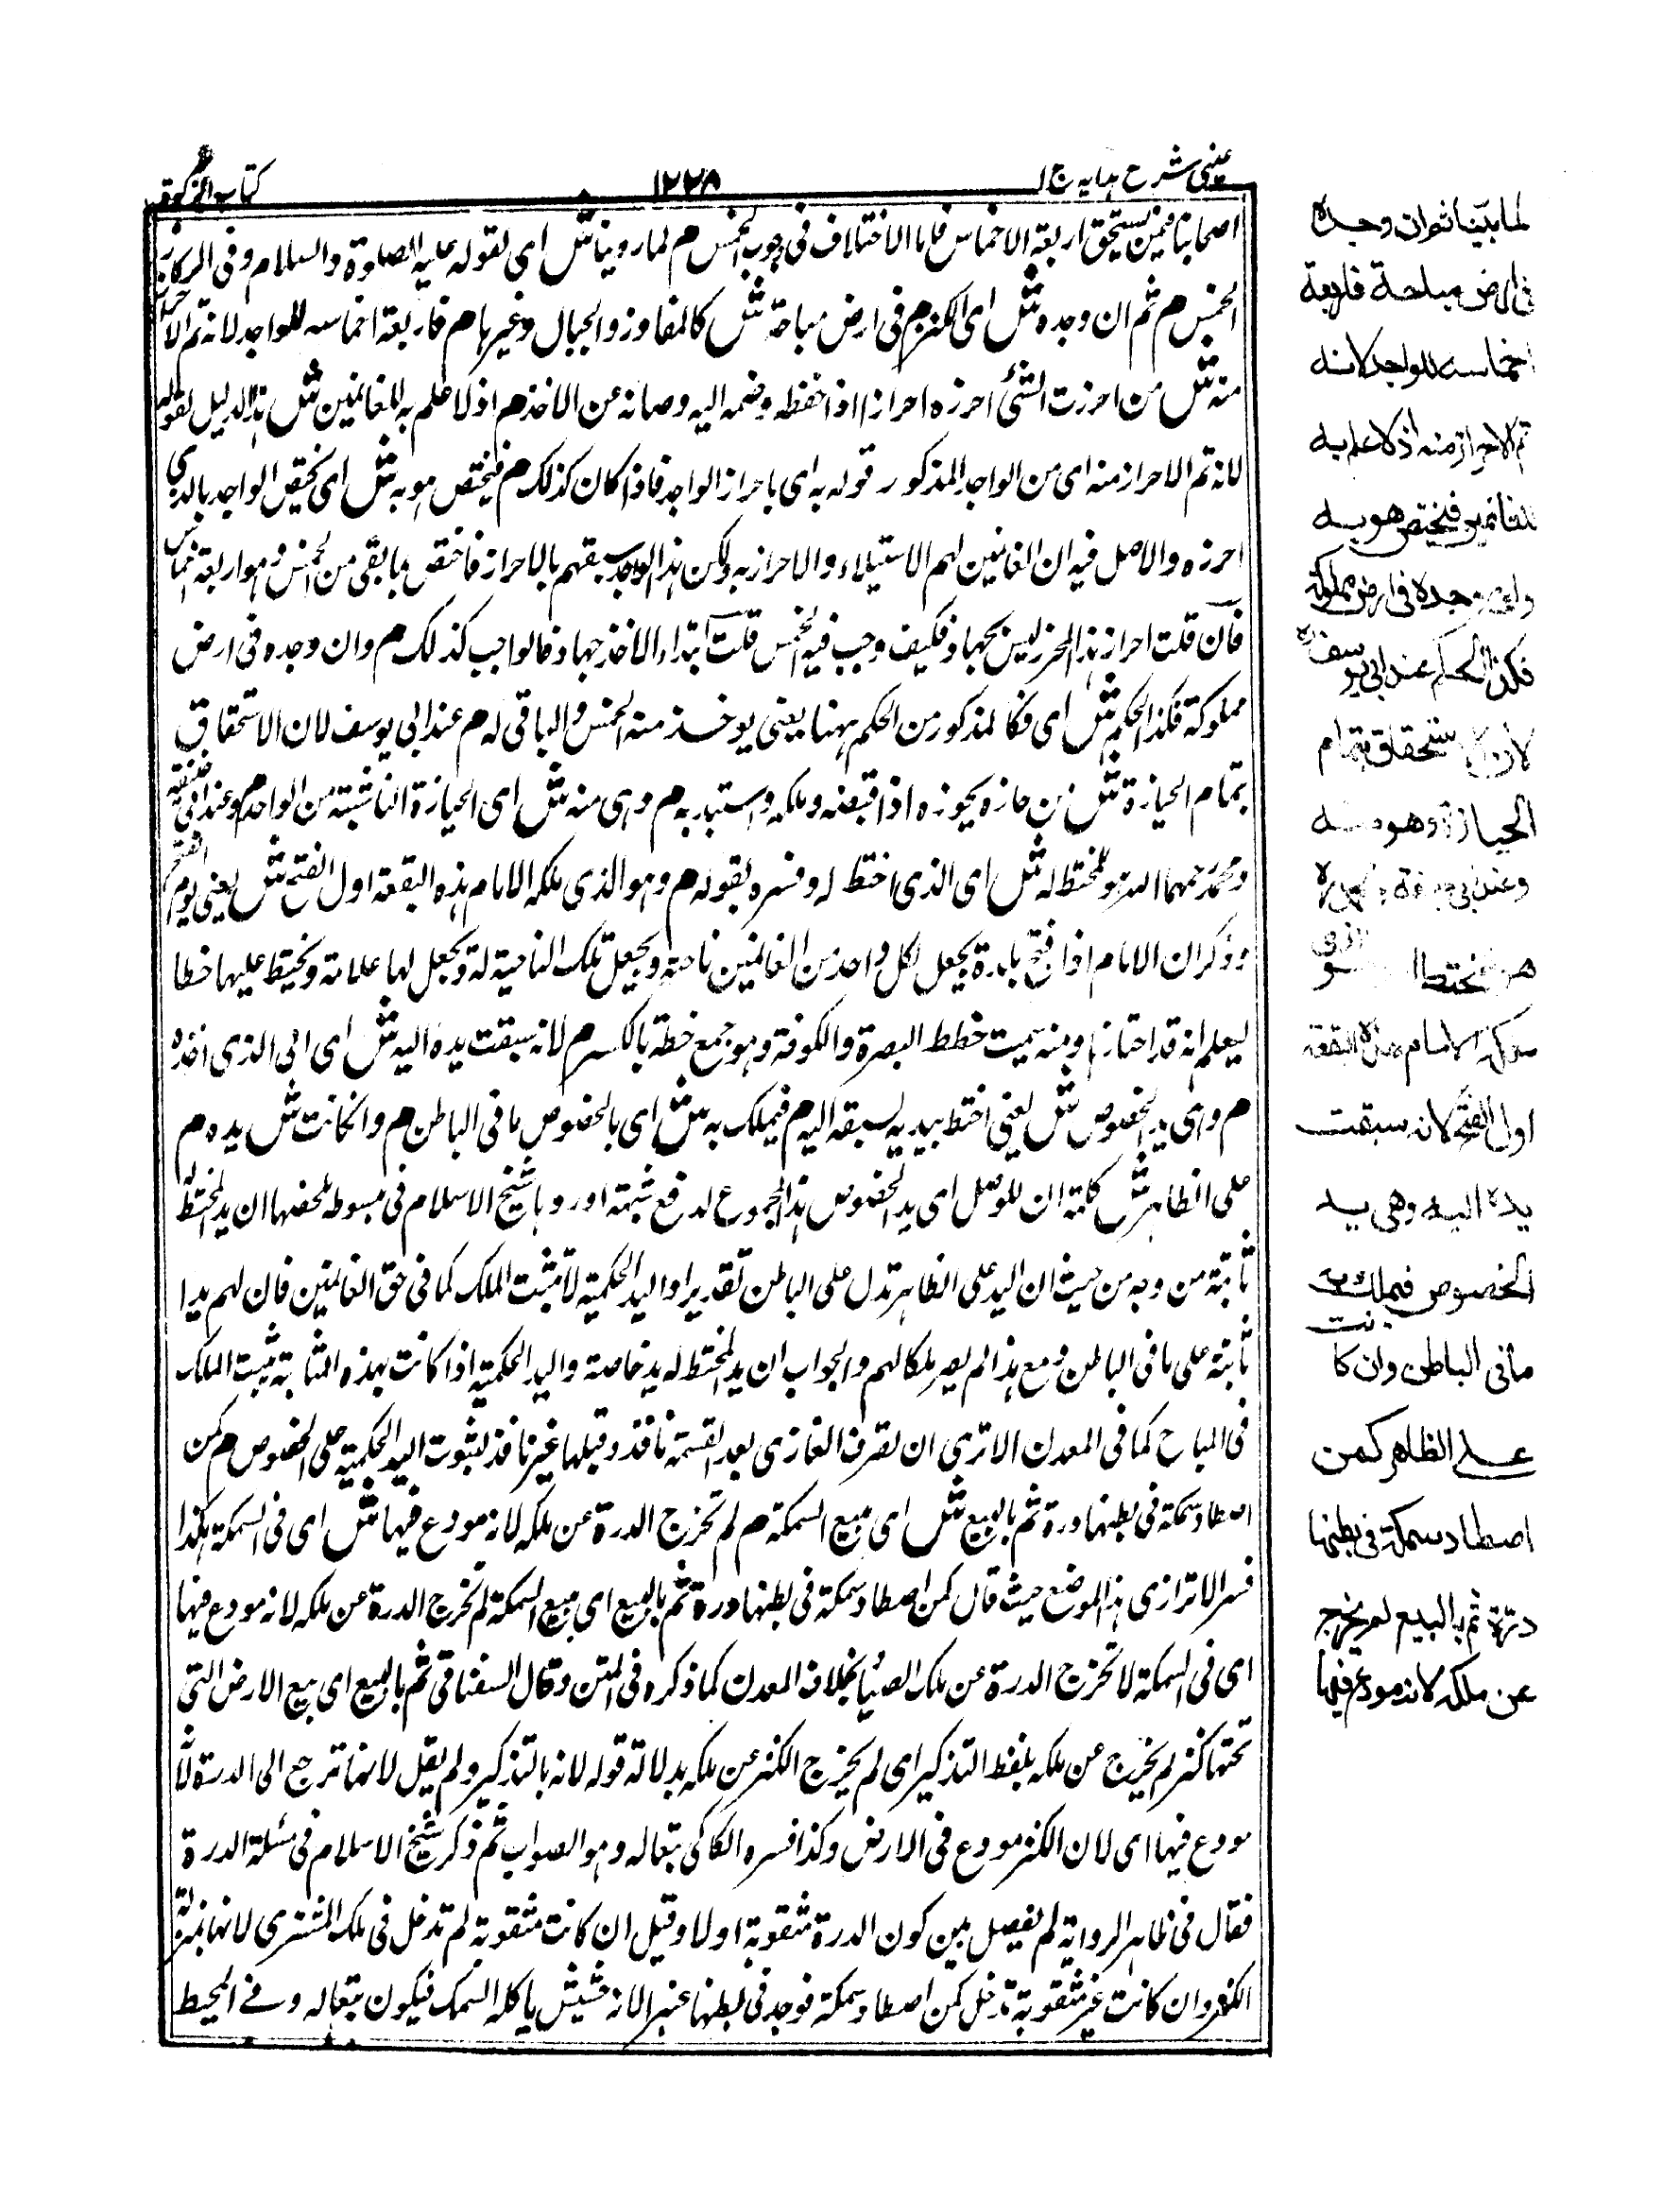 عینی شرح ہدایہ ج ۱
۱۲۲۸
کتاب الزکوة
اصحابنا فيمن يستحق اربعة الاخماس فاما الاختلاف فى وجوب الخمس م لما روينا ش اى لقوله عليه الصلوة والسلام وفى الركاز
الخمس م ثم ان وجده ش اى الكنز م فى ارض مباحة ش كالمفاوز والجبال وغيرها م فاربعة اخماسه للواجد لانه تم الاحراز
منه ش من احرزت الشئ احرزه احرازا اذا حفظه وضمه اليه وصانه عن الاخذ م اذ لا علم به للغانمين ش هذا الدليل لقوله
لانه تم الاحراز منه اى من الواجد المذكور قوله به اى باحراز الواجد فاذا كان كذلك م فيختص هو به ش اى يختص الواجد بالذى
احرزه والاصل فيه ان الغانمين لهم الاستيلاء والاحراز به ولكن هذا الواجد سبقهم بالاحراز فاختص بما بقى من الخمس وهو اربعة اخماس
فان قلت احراز هذا المحرز ليس بجهاد فكيف وجب فيه الخمس قلت ابتداء الاخذ جهاد فالواجب كذلك م وان وجده فى ارض
مملوكة فكذا الحكم ش اى فكالمذكور من الحكم ههنا يعنى يوخذ منه الخمس والباقى له م عند ابى يوسف لان الاستحقاق
بتمام الحيازة ش من حازه يحوزه اذا قبضه وملكه واستبد به م وهى منه ش اى الحيازة الناشئة من الواجد م وعند ابى حنيفة
ومحمد رحمهما الله هو للمختط له ش اى الذى اختط له وفسره بقوله م وهو الذى ملكه الامام هذه البقعة اول الفتح ش يعنى يوم الفتح
وذكر ان الامام اذا فتح بلدة يجعل لكل واحد من الغانمين ناحية ويجعل تلك الناحية له ويجعل لها علامة ويختط عليها خطا
ليعلم انه قد احتازها ومنه سميت خطط البصرة والكوفة وهو جمع خطة بالكسر م لانه سبقت يده اليه ش اى الى الذى اخذه
م وهى يد الخصوص ش يعنى اختط بيديه لسبقه اليه م فيملك به ش اى بالخصوص ما فى الباطن م وان كانت ش يده م
على الظاهر ش كلمة ان للوصل اى يد الخصوص هذا المجموع لدفع شبهة اوردها شيخ الاسلام فى مبسوطه ملخصها ان يد المختط له
ثابتة من وجه من حيث ان اليد على الظاهر تدل على الباطن تقديرا واليد الحكمية لا تثبت الملك كما فى حق الغانمين فان لهم يدا
ثابتة على ما فى الباطن ومع هذا لم يصر ملكا لهم والجواب ان يد المختط له يد خاصة واليد الحكمية اذا كانت بهذه المثابة تثبت الملك
فى المباح كما فى المعدن الا ترى ان تصرف الغازى بعد القسمة نافذ وقبلها غير نافذ لثبوت اليد الحكمية على الخصوص م كمن
اصطاد سمكة فى بطنها درة ثم بالبيع ش اى بيع السمكة م لم تخرج الدرة عن ملكه لانه مودع فيها ش اى فى السمكة هكذا
فسر الاترازى هذا الموضع حيث قال كمن اصطاد سمكة فى بطنها درة ثم بالبيع اى بيع السمكة لم تخرج الدرة عن ملكه لانه مودع فيها
اى فى السمكة لا تخرج الدرة عن ملك الصياد بخلاف المعدن كما ذكره فى المتن وقال السغناقى ثم بالبيع اى بيع الارض التى
تحتها كنز لم يخرج عن ملكه بلفظ التذكير اى لم يخرج الكنز عن ملكه بدلالة قوله لانه بالتذكير ولم يقل لانها ترجع الى الدرة لانه
مودع فيها اى لان الكنز مودع فى الارض وكذا فسره الكاكى تبعا له وهو الصواب ثم ذكر شيخ الاسلام فى مسئلة الدرة
فقال فى ظاهر الرواية لم يفصل بين كون الدرة مثقوبة او لا وقيل ان كانت مثقوبة لم تدخل فى ملك المشترى لانها بمنزلة
الكنز وان كانت غير مثقوبة تدخل كمن اصطاد سمكة فوجد فى بطنها عنبرا لانه حشيش ياكله السمك فيكون تبعا له وفى المحيط
لما بيّنا ثم ان وجده
فى ارض مباحة فاربعة
اخماسه للواجد لانه
تم الاحراز منه اذ لا علم به
للغانمين فيختص هو به
وان وجده فى ارض مملوكة
فكذا الحكم عند ابى يوسف
لان الاستحقاق بتمام
الحيازة وهو منه
وعند ابى
المختط
الامام هذه البقعة
اول الفتح لانه سبقت
يده اليه وهى يد
الخصوص فيملك به
ما فى الباطن وان كانت
على الظاهر كمن
اصطاد سمكة فى بطنها
درة ثم بالبيع لم يخرج
عن ملكه لانه مودع فيها